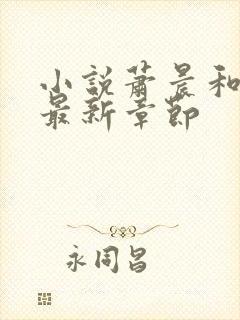 小説蕭晨和
最新章節
永同昌